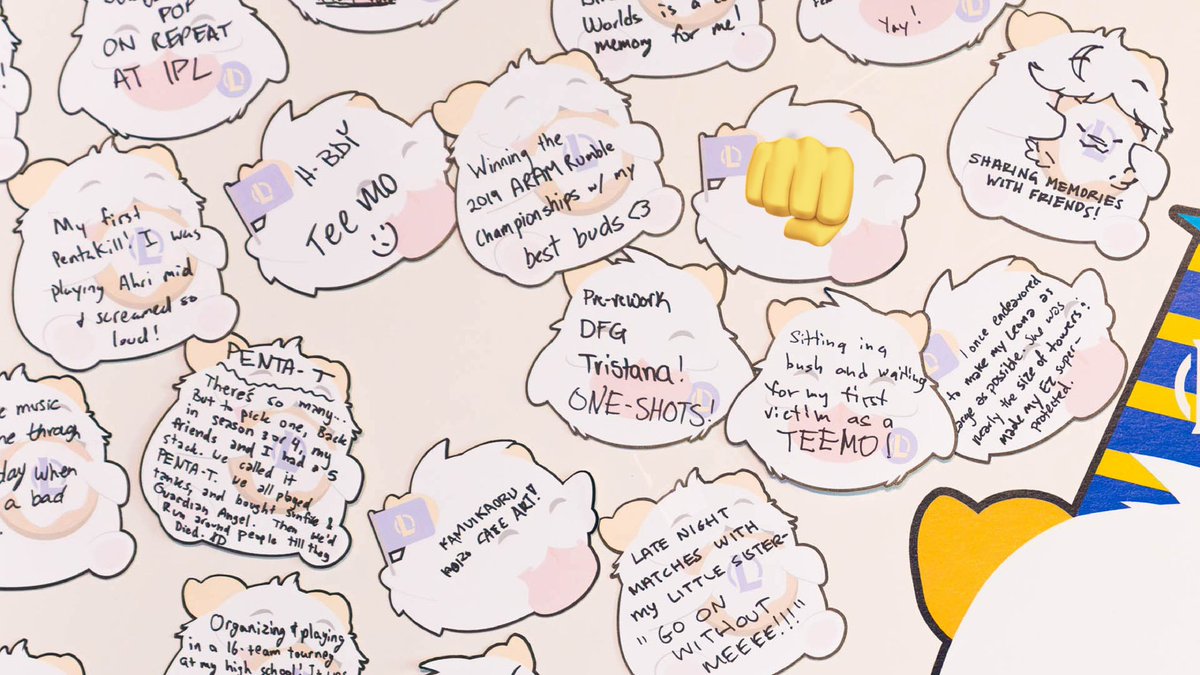 POP
ON REPEAT
AT IPL
Worlds is a
memory for me!
Yay!
H-BDY
TEEMO
:)
Winning the
2019 ARAM Rumble
Championships w/ my
best buds <3
SHARING MEMORIES
WITH FRIENDS!
My first
Pentakill! I was
playing Ahri mid
& screamed so
loud!
Pre-rework
DFG
Tristana!
ONE-SHOTS!
Sitting in a
bush and waiting
for my first
victim as a
TEEMO!
I once endeavored
to make my Leona as
large as possible. She was
nearly the size of towers!
made my EZ super-
protected.
PENTA-T
There's so many..
But to pick one, Back
in season 3 or 4, my
friends and I had a 5
stack. we called it
PENTA-T. We all played
tanks, and bought sunfire &
Guardian Angel. Then we'd
Run around people till they
Died. XD
music
through
day when
a bad
KAMUIKAORU
CAFE ART!
LATE NIGHT
MATCHES WITH
MY LITTLE SISTER-
"GO ON
WITHOUT
MEEEE!!!"
Organizing & playing
in a 16-team tourney
at my high school!